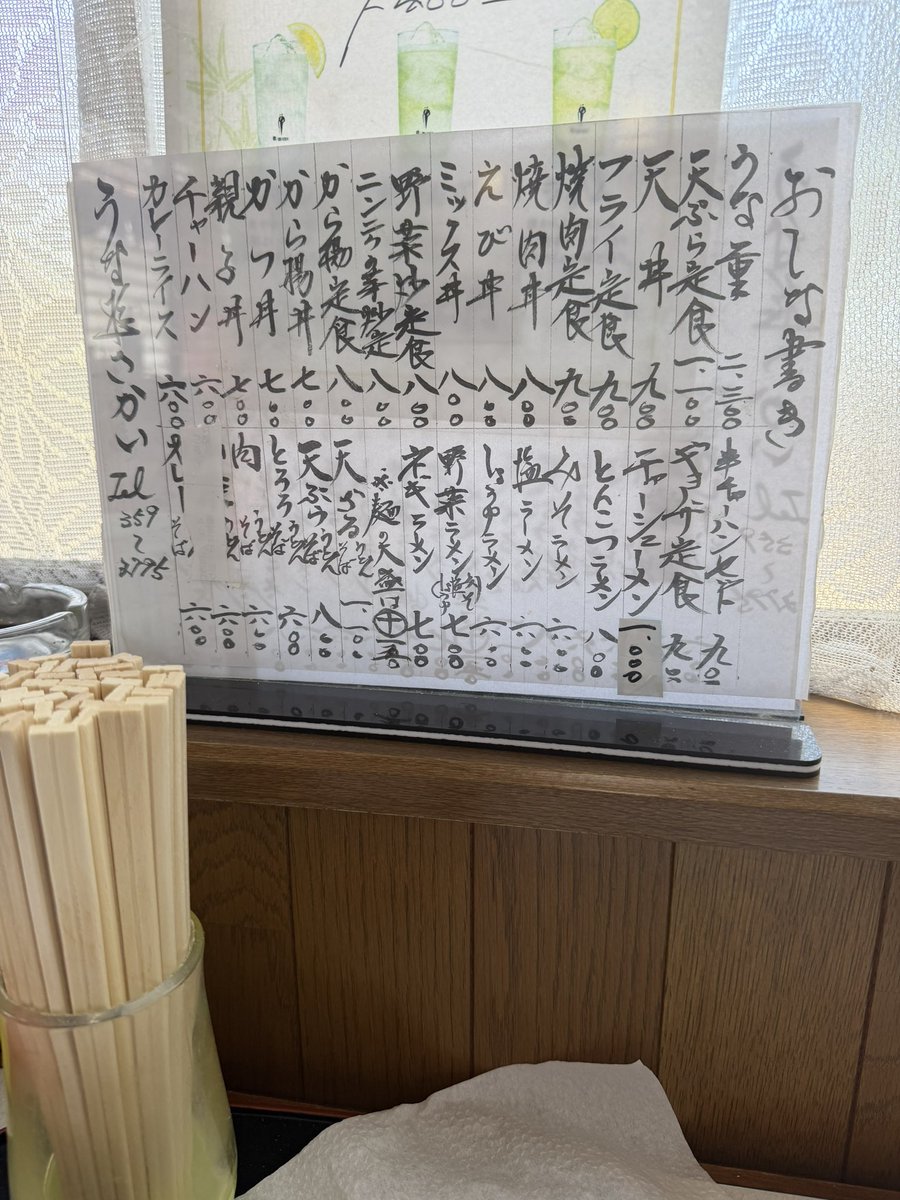 おしながき
うな重 二、三〇〇
天ぷら定食 一、一〇〇
天丼 九〇〇
フライ定食 九〇〇
焼肉定食 九〇〇
焼肉丼 八〇〇
えび丼 八〇〇
ミックス丼 八〇〇
野菜炒定食 八〇〇
ニンニクの芽炒定 八〇〇
から揚定食 八〇〇
から揚丼 七〇〇
かつ丼 七〇〇
親子丼 七〇〇
チャーハン 六〇〇
カレーライス 六〇〇
半チャーハンセット 九〇〇
ギョーザ定食 九〇〇
チャーシューメン 一、〇〇〇
とんこつラーメン 八〇〇
みそラーメン 六〇〇
塩ラーメン 六〇〇
しょうゆラーメン 六〇〇
野菜ラーメン みそ 塩 しょうゆ 七〇〇
ネギラーメン 七〇〇
麺の大盛は
天ざる うどん そば
天ぷら うどん そば 八〇〇
とろろ うどん そば 六〇〇
肉 うどん そば 六〇〇
うどん 六〇〇
カレー そば 六〇〇
うな遊さかい Tel 359〜2795